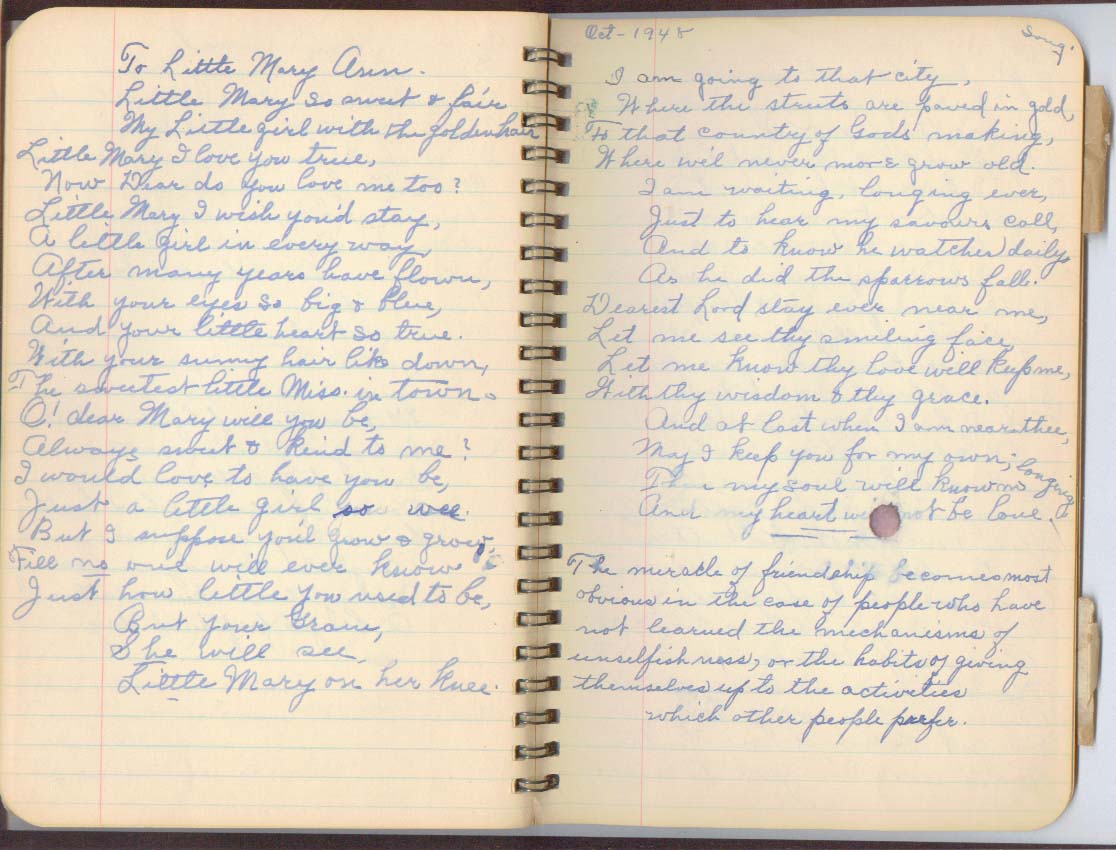 To Little Mary Ann.
Little Mary so sweet & fair
My Little girl with the golden hair
Little Mary I love you true,
Now Dear do you love me too?
Little Mary I wish you'd stay,
A little girl in every way,
After many years have flown,
With your eyes so big & blue,
And your little heart so true.
With your sunny hair like down,
The sweetest little Miss. in town.
O! dear Mary will you be,
Always sweet & kind to me?
I would love to have you be,
Just a little girl so wee.
But I suppose you'll grow & grow,
Till no one will ever know
Just how little you used to be,
But your
She will see,
Little Mary on her knee.
Oct - 1948
Song.
I am going to that city,
Where the streets are paved in gold,
To that country of Gods making,
Where we'll never more grow old.
I am waiting, longing ever,
Just to hear my savours call,
And to know he watches daily,
As he did the sparrows fall.
Dearest Lord stay ever near me,
Let me see thy smiling face,
Let me know thy love will keep me,
With thy wisdom & thy grace.
And at last when I am near thee,
May I keep you for my own;
my soul will know no longing,
And my heart not be lone.
The miracle of friendship becomes most
obvious in the case of people who have
not learned the mechanisms of
unselfishness, or the habits of giving
themselves up to the activities
which other people prefer.